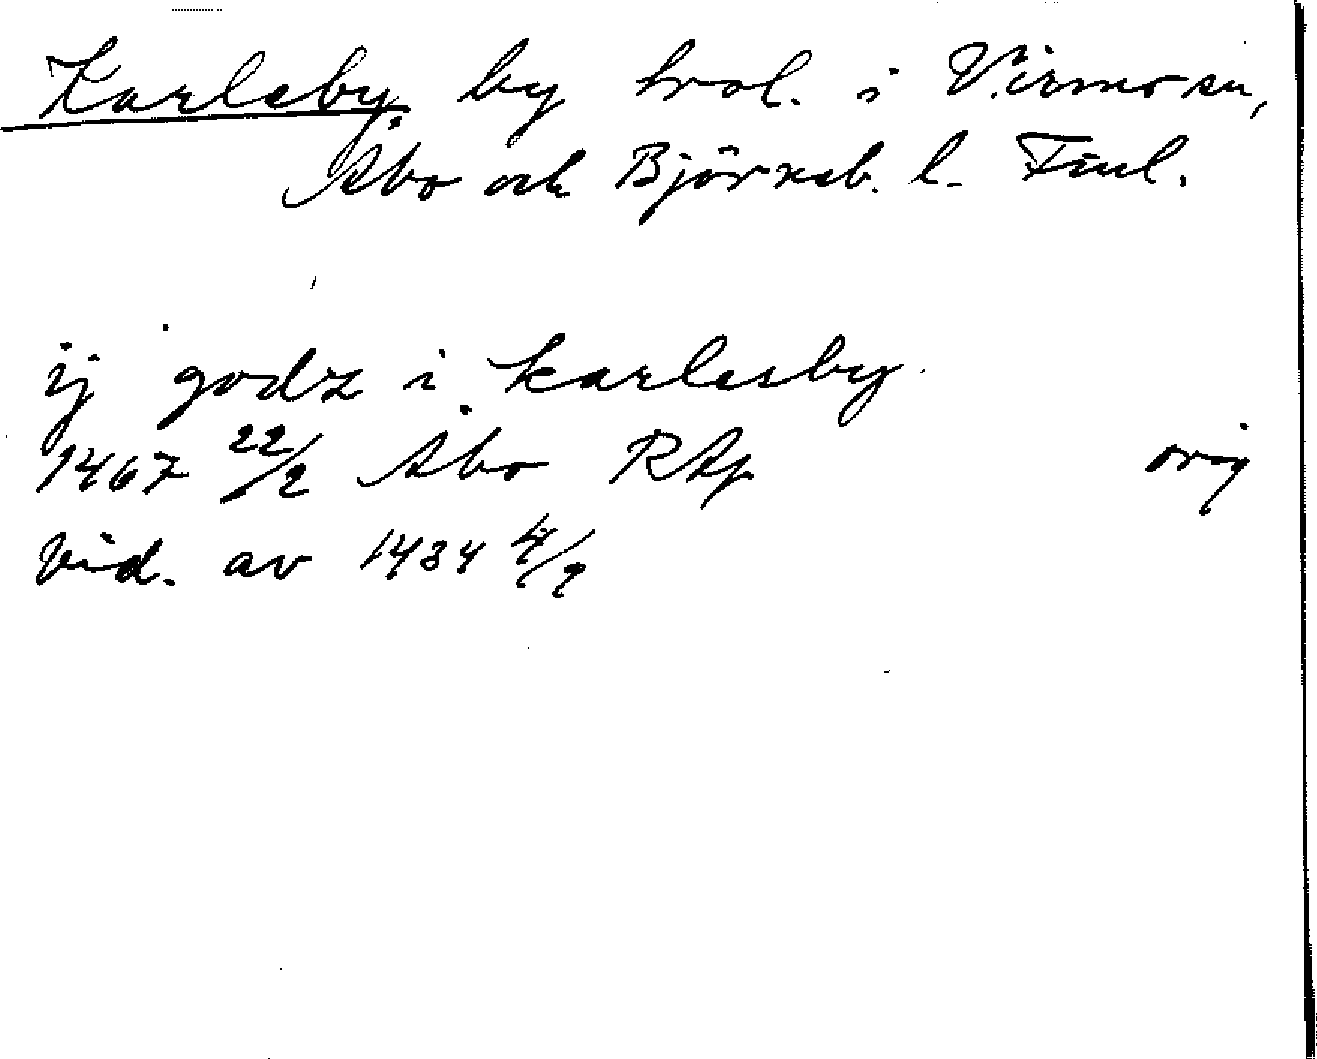 Karleby by trol. i Virmo sn,
Åbo och Björneb. l. Finl.
ij godz i karlesby
1467 22/2 Åbo RAp orig
Vid. av 1484 4/9